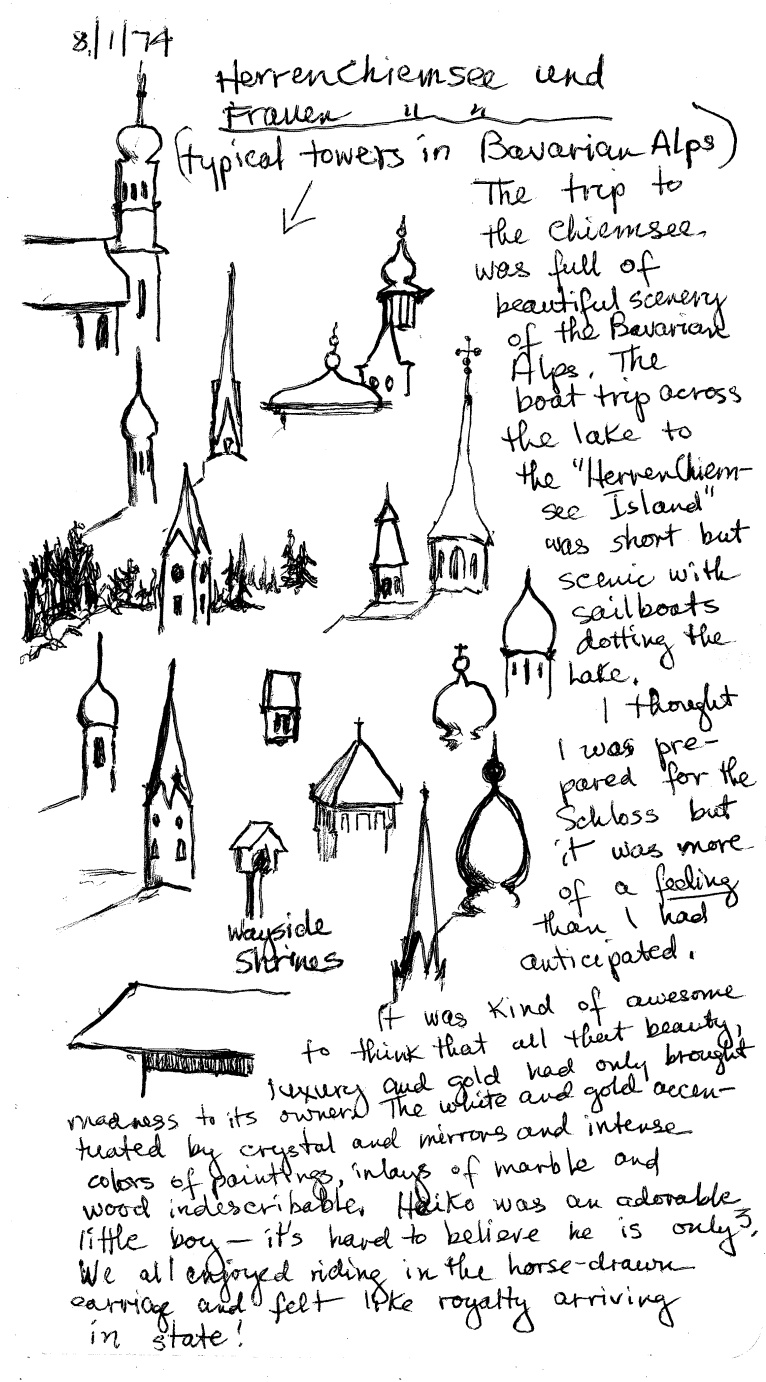 8/1/74
HerrenChiemsee und
Frauen " "
(typical towers in Bavarian Alps)
The trip to
the Chiemsee
was full of
beautiful scenery
of the Bavarian
Alps. The
boat trip across
the lake to
the "HerrenChiem-
see Island"
was short but
scenic with
sailboats
dotting the
Lake.
I thought
I was pre-
pared for the
Schloss but
it was more
of a feeling
than I had
anticipated.
wayside
Shrines
It was kind of awesome
to think that all that beauty,
luxury and gold had only brought
madness to its owner. The white and gold accen-
tuated by crystal and mirrors and intense
colors of paintings, inlays of marble and
wood indescribable. Heiko was an adorable
little boy — it's hard to believe he is only 3.
We all enjoyed riding in the horse-drawn
carriage and felt like royalty arriving
in state!